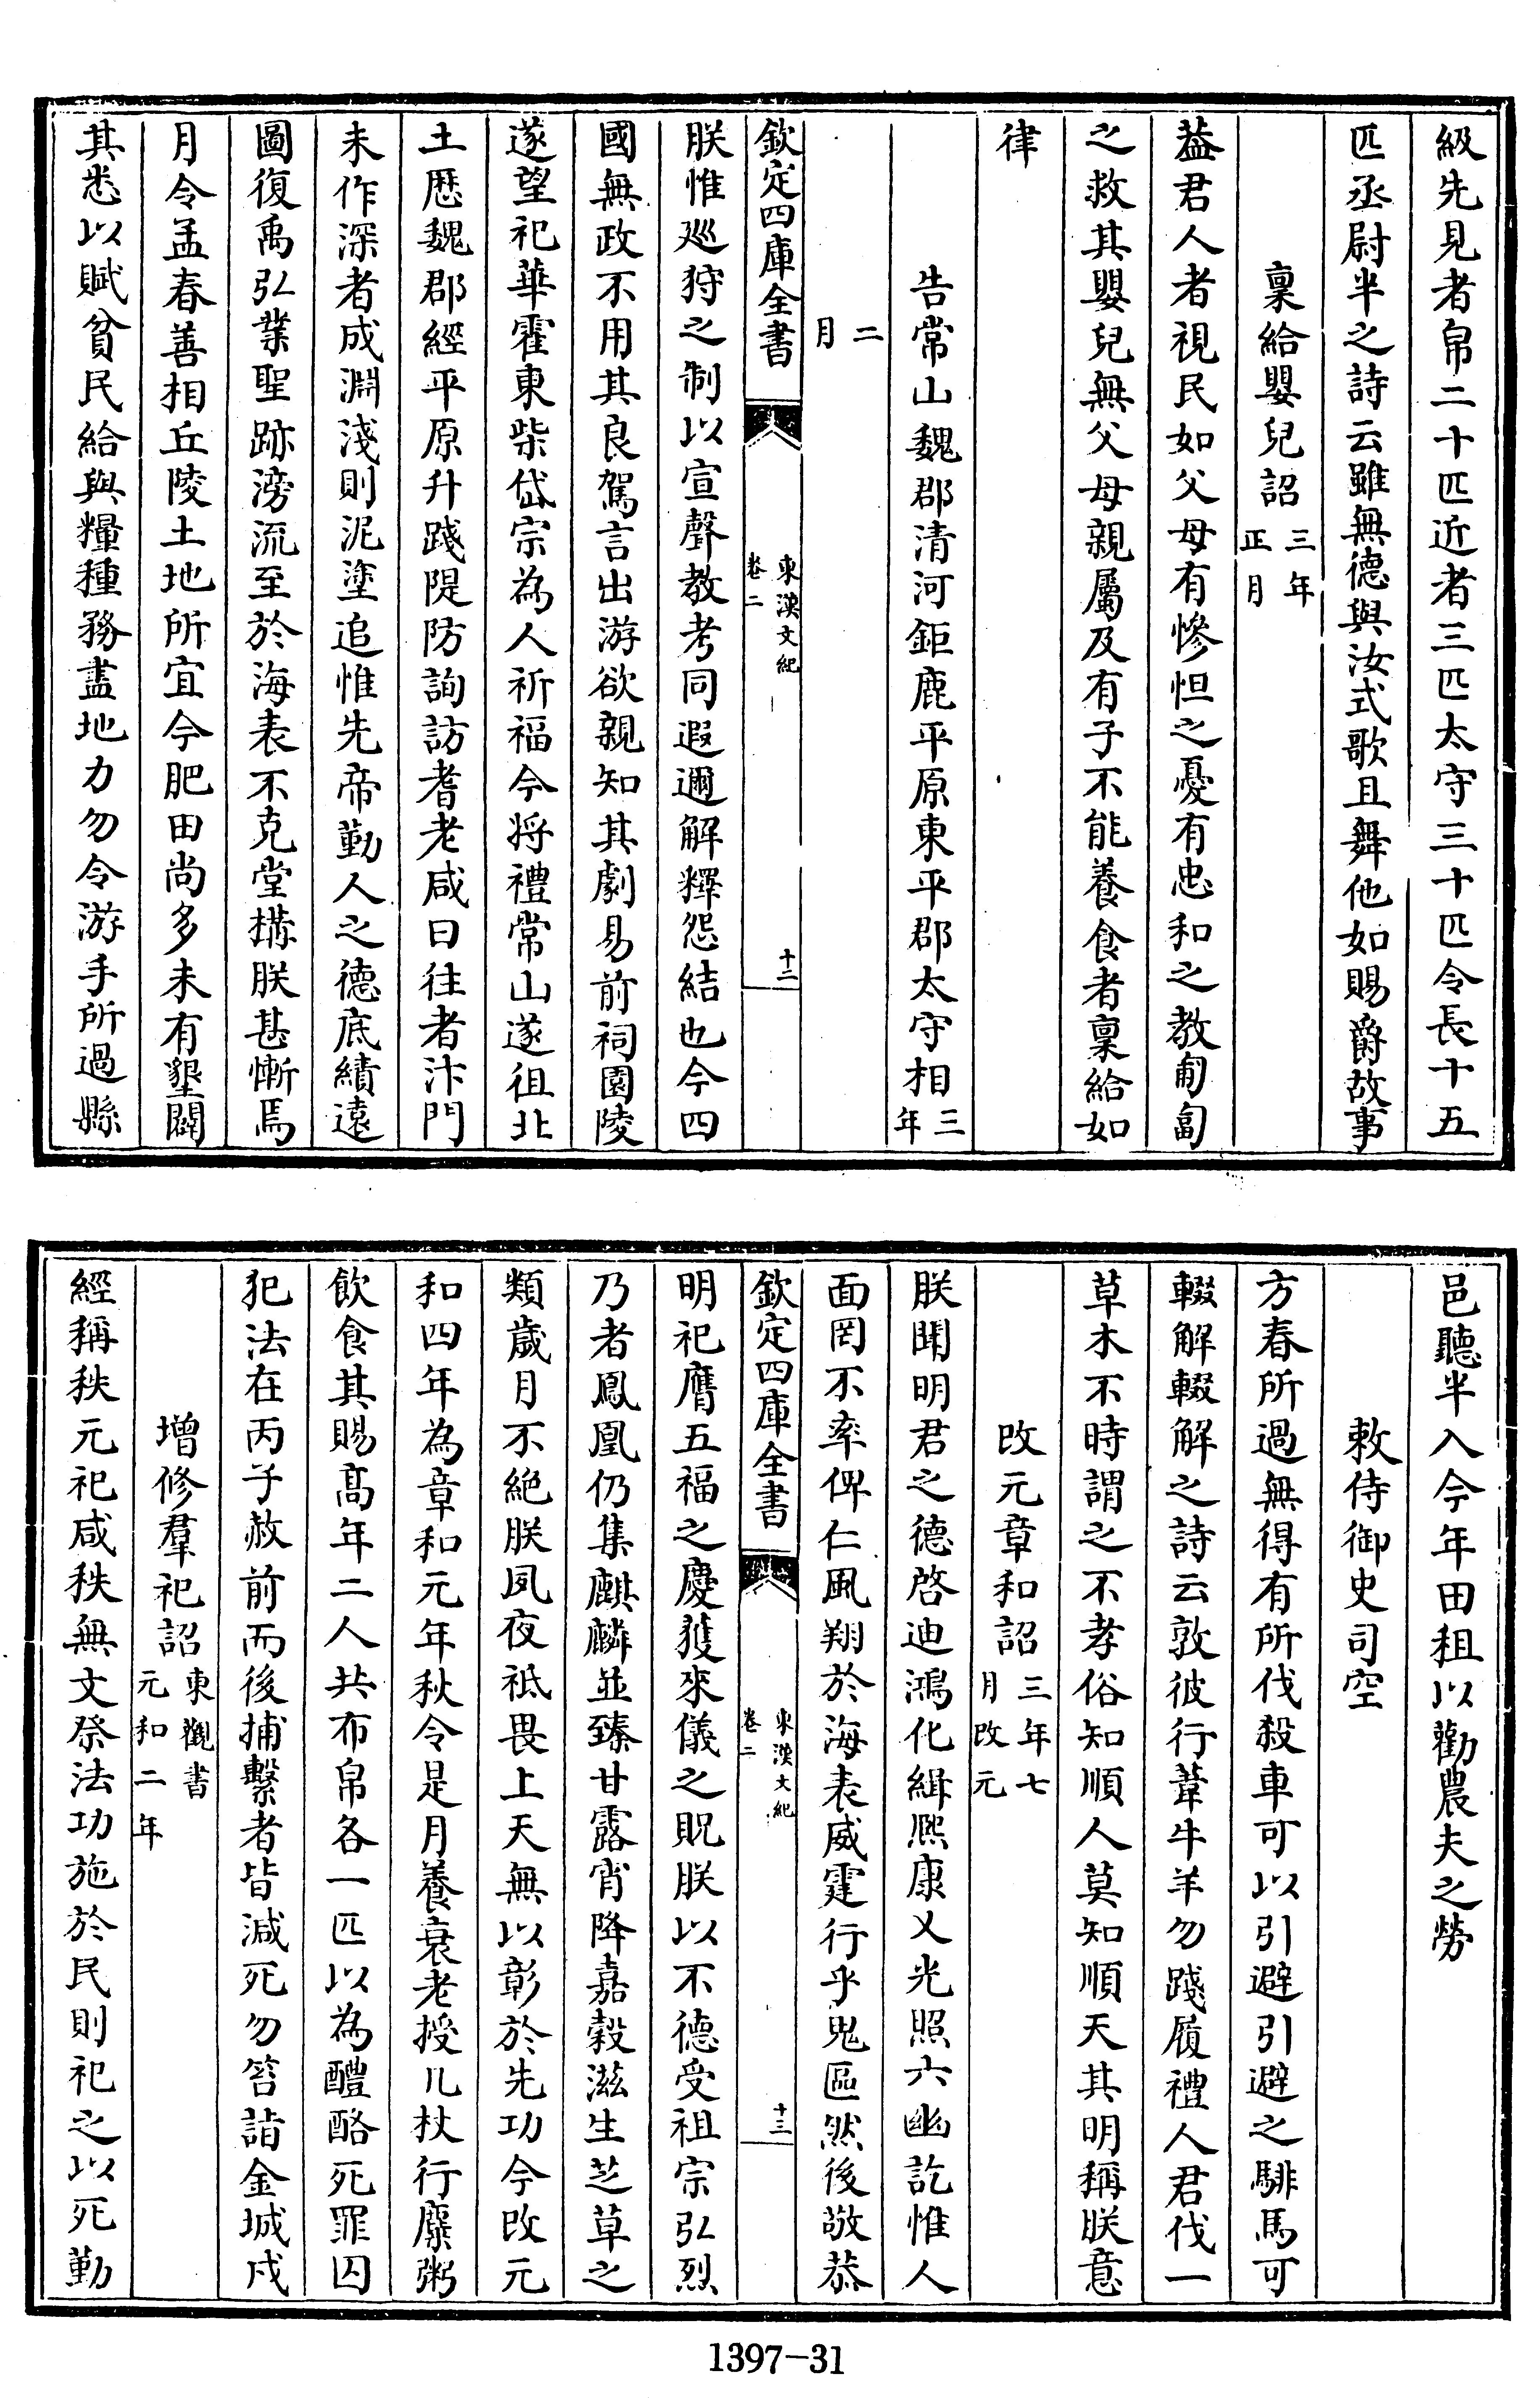 級先見者帛二十匹近者三匹太守三十匹令長十五
匹丞尉半之詩云雖無德與汝式歌且舞他如賜爵故事
稟給嬰兒詔三年正月
葢君人者視民如父母有慘怛之憂有忠和之教匍匐
之救其嬰兒無父母親屬及有子不能養食者稟給如
律
告常山魏郡清河鉅鹿平原東平郡太守相三年
二月
欽定四庫全書
東漢文紀
卷二
十二
朕惟廵狩之制以宣聲教考同遐邇解釋怨結也今四
國無政不用其良駕言出游欲親知其劇易前祠園陵
遂望祀華霍東柴岱宗為人祈福今将禮常山遂徂北
土歴魏郡經平原升踐隄防詢訪耆老咸曰往者汴門
未作深者成淵淺則泥塗追惟先帝勤人之德底績遠
圖復禹弘業聖跡滂流至於海表不克堂構朕甚慚焉
月令孟春善相丘陵土地所宜今肥田尚多未有墾闢
其悉以賦貧民給與糧種務盡地力勿令游手所過縣
邑聽半入今年田租以勸農夫之勞
敕侍御史司空
方春所過無得有所伐殺車可以引避引避之騑馬可
輟解輟解之詩云敦彼行葦牛羊勿踐履禮人君伐一
草木不時謂之不孝俗知順人莫知順天其明稱朕意
改元章和詔三年七月改元
朕聞明君之德啓迪鴻化緝熙康乂光照六幽訖惟人
面罔不率俾仁風翔於海表威霆行乎鬼區然後敬恭
欽定四庫全書
東漢文紀
卷二
十三
明祀膺五福之慶獲來儀之貺朕以不德受祖宗弘烈
乃者鳳凰仍集麒麟並臻甘露宵降嘉穀滋生芝草之
類歲月不絕朕夙夜祗畏上天無以彰於先功今改元
和四年為章和元年秋令是月養衰老授几杖行糜粥
飲食其賜髙年二人共布帛各一匹以為醴酪死罪囚
犯法在丙子赦前而後捕繫者皆減死勿笞詣金城戍
增修羣祀詔東觀書元和二年
經稱秩元祀咸秩無文祭法功施於民則祀之以死勤
1397-31